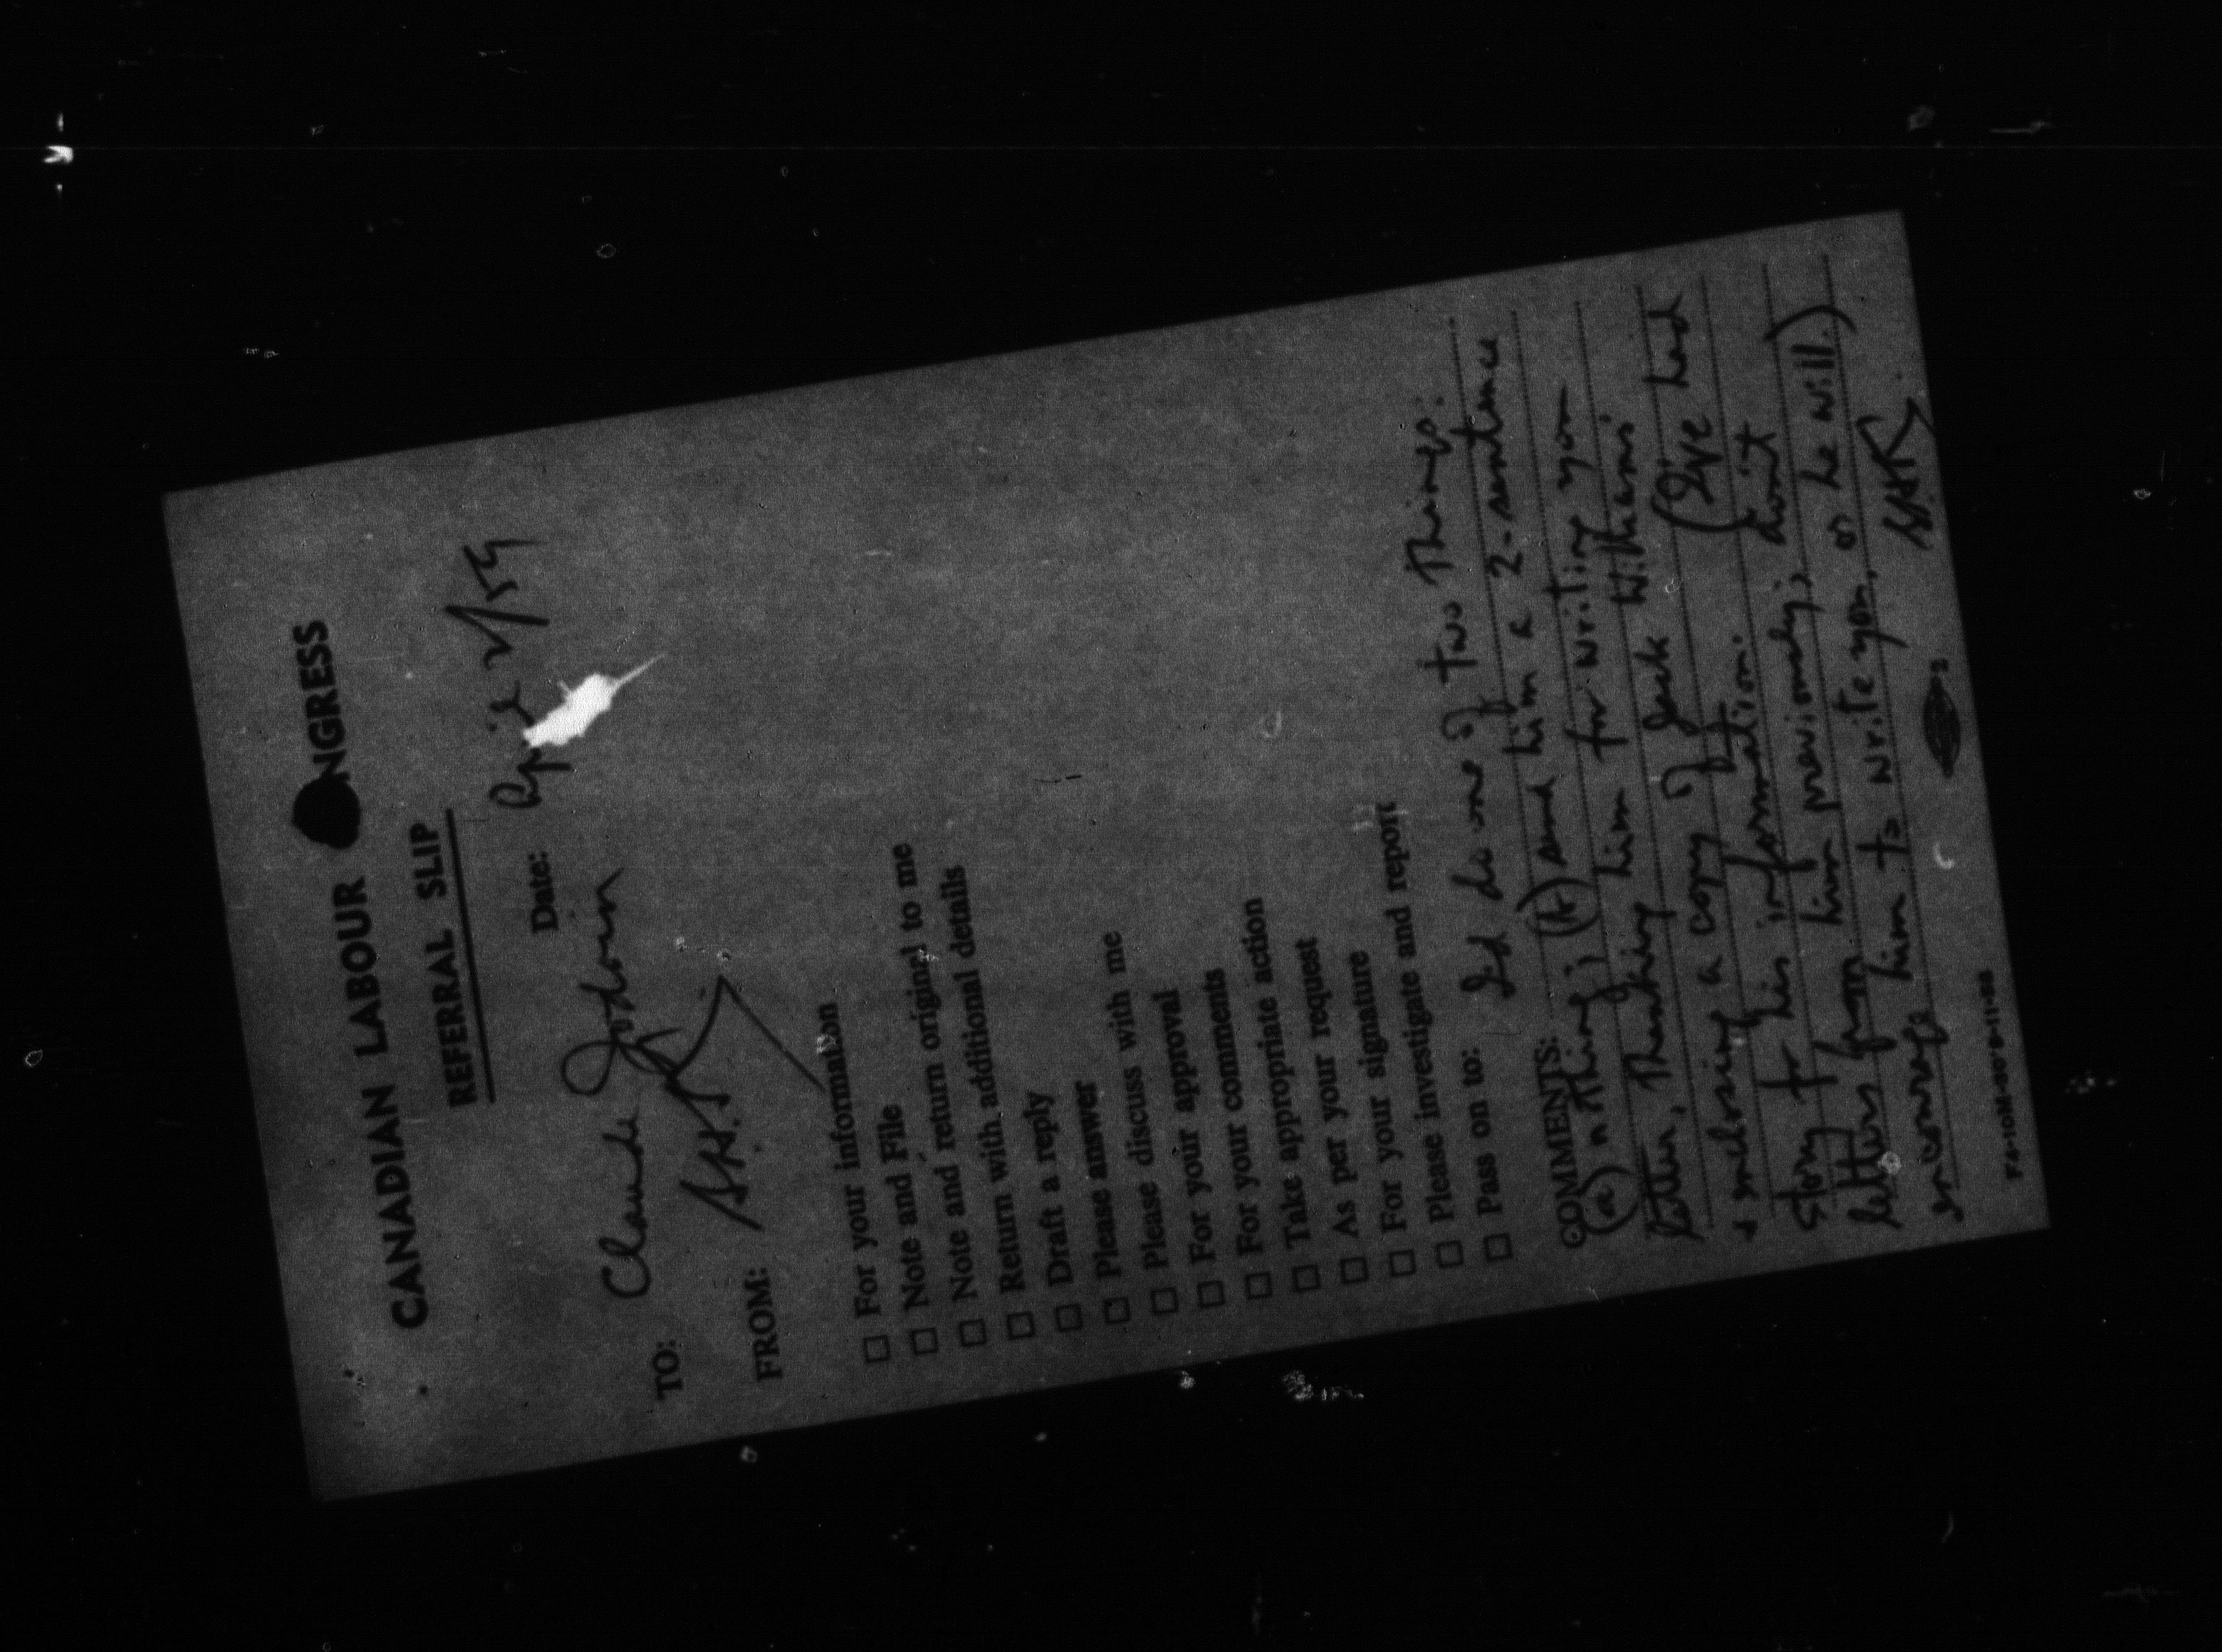 CANADIAN LABOUR CONGRESS
REFERRAL SLIP
Date: April 2/59
TO: Claude Jodoin
FROM: A.H.
☐ For your information
☐ Note and File
☐ Note and return original to me
☐ Return with additional details
☐ Draft a reply
☐ Please answer
☐ Please discuss with me
☐ For your approval
☐ For your comments
☐ Take appropriate action
☐ As per your request
☐ For your signature
☐ Please investigate and report
☐ Pass on to:
COMMENTS: I'd do one of two things:
(a) nothing; (b) send him a 2-sentence
letter, thanking him for writing you
& enclosing a copy of Jack Williams'
story for his information. (I've had
letters from him previously; don't
encourage him to write you, or he will.)
FS-10M-00